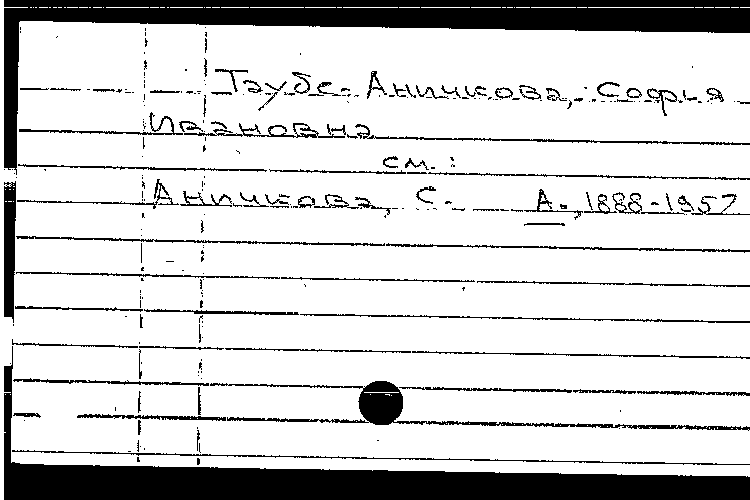 Таубе-Аничкова, Софья
Ивановна
см.:
Аничкова, С. А., 1888-1957